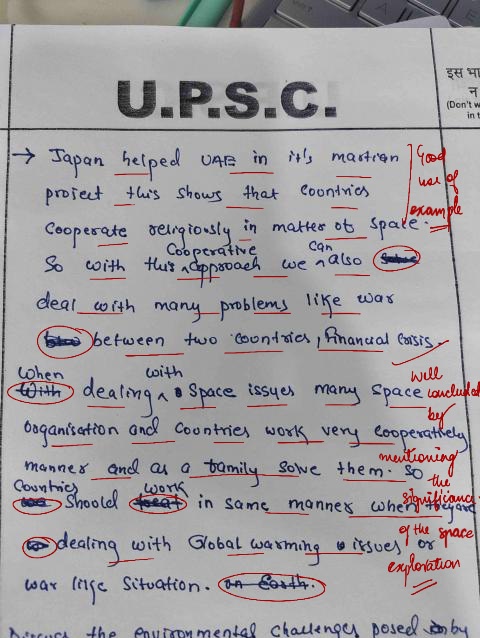 U.P.S.C.
इस भा
न
(Don't w
in t
→ Japan helped UAE in it's martian
project this shows that countries
cooperate religiously in matter of space.
Good
use of
example
Cooperative can
So with this approach we also
deal with many problems like war
between two countries, Financial Crisis.
When with
With dealing Space issues many Space
organisation and countries work very cooperatively
manner and as a family solve them. So
Countries work
we should treat in same manner when
dealing with Global warming issues or
war like situation. on Earth.
will
concluded
by
mentioning
the
significance
of the space
exploration
Discuss the environmental challenges posed by